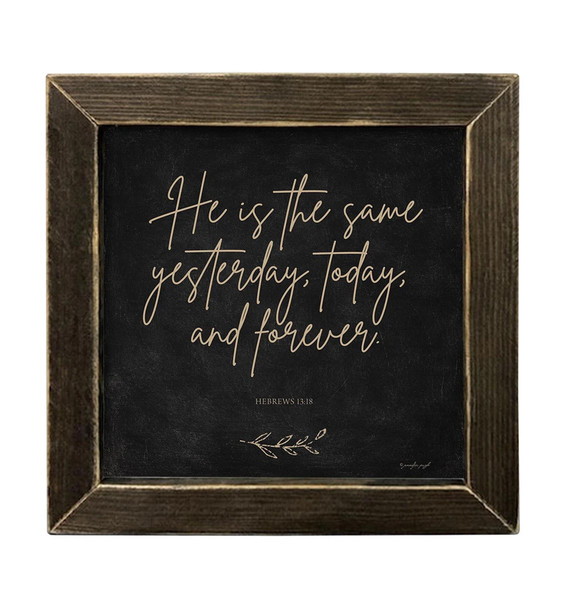 He is the same
yesterday, today,
and forever.
HEBREWS 13:18